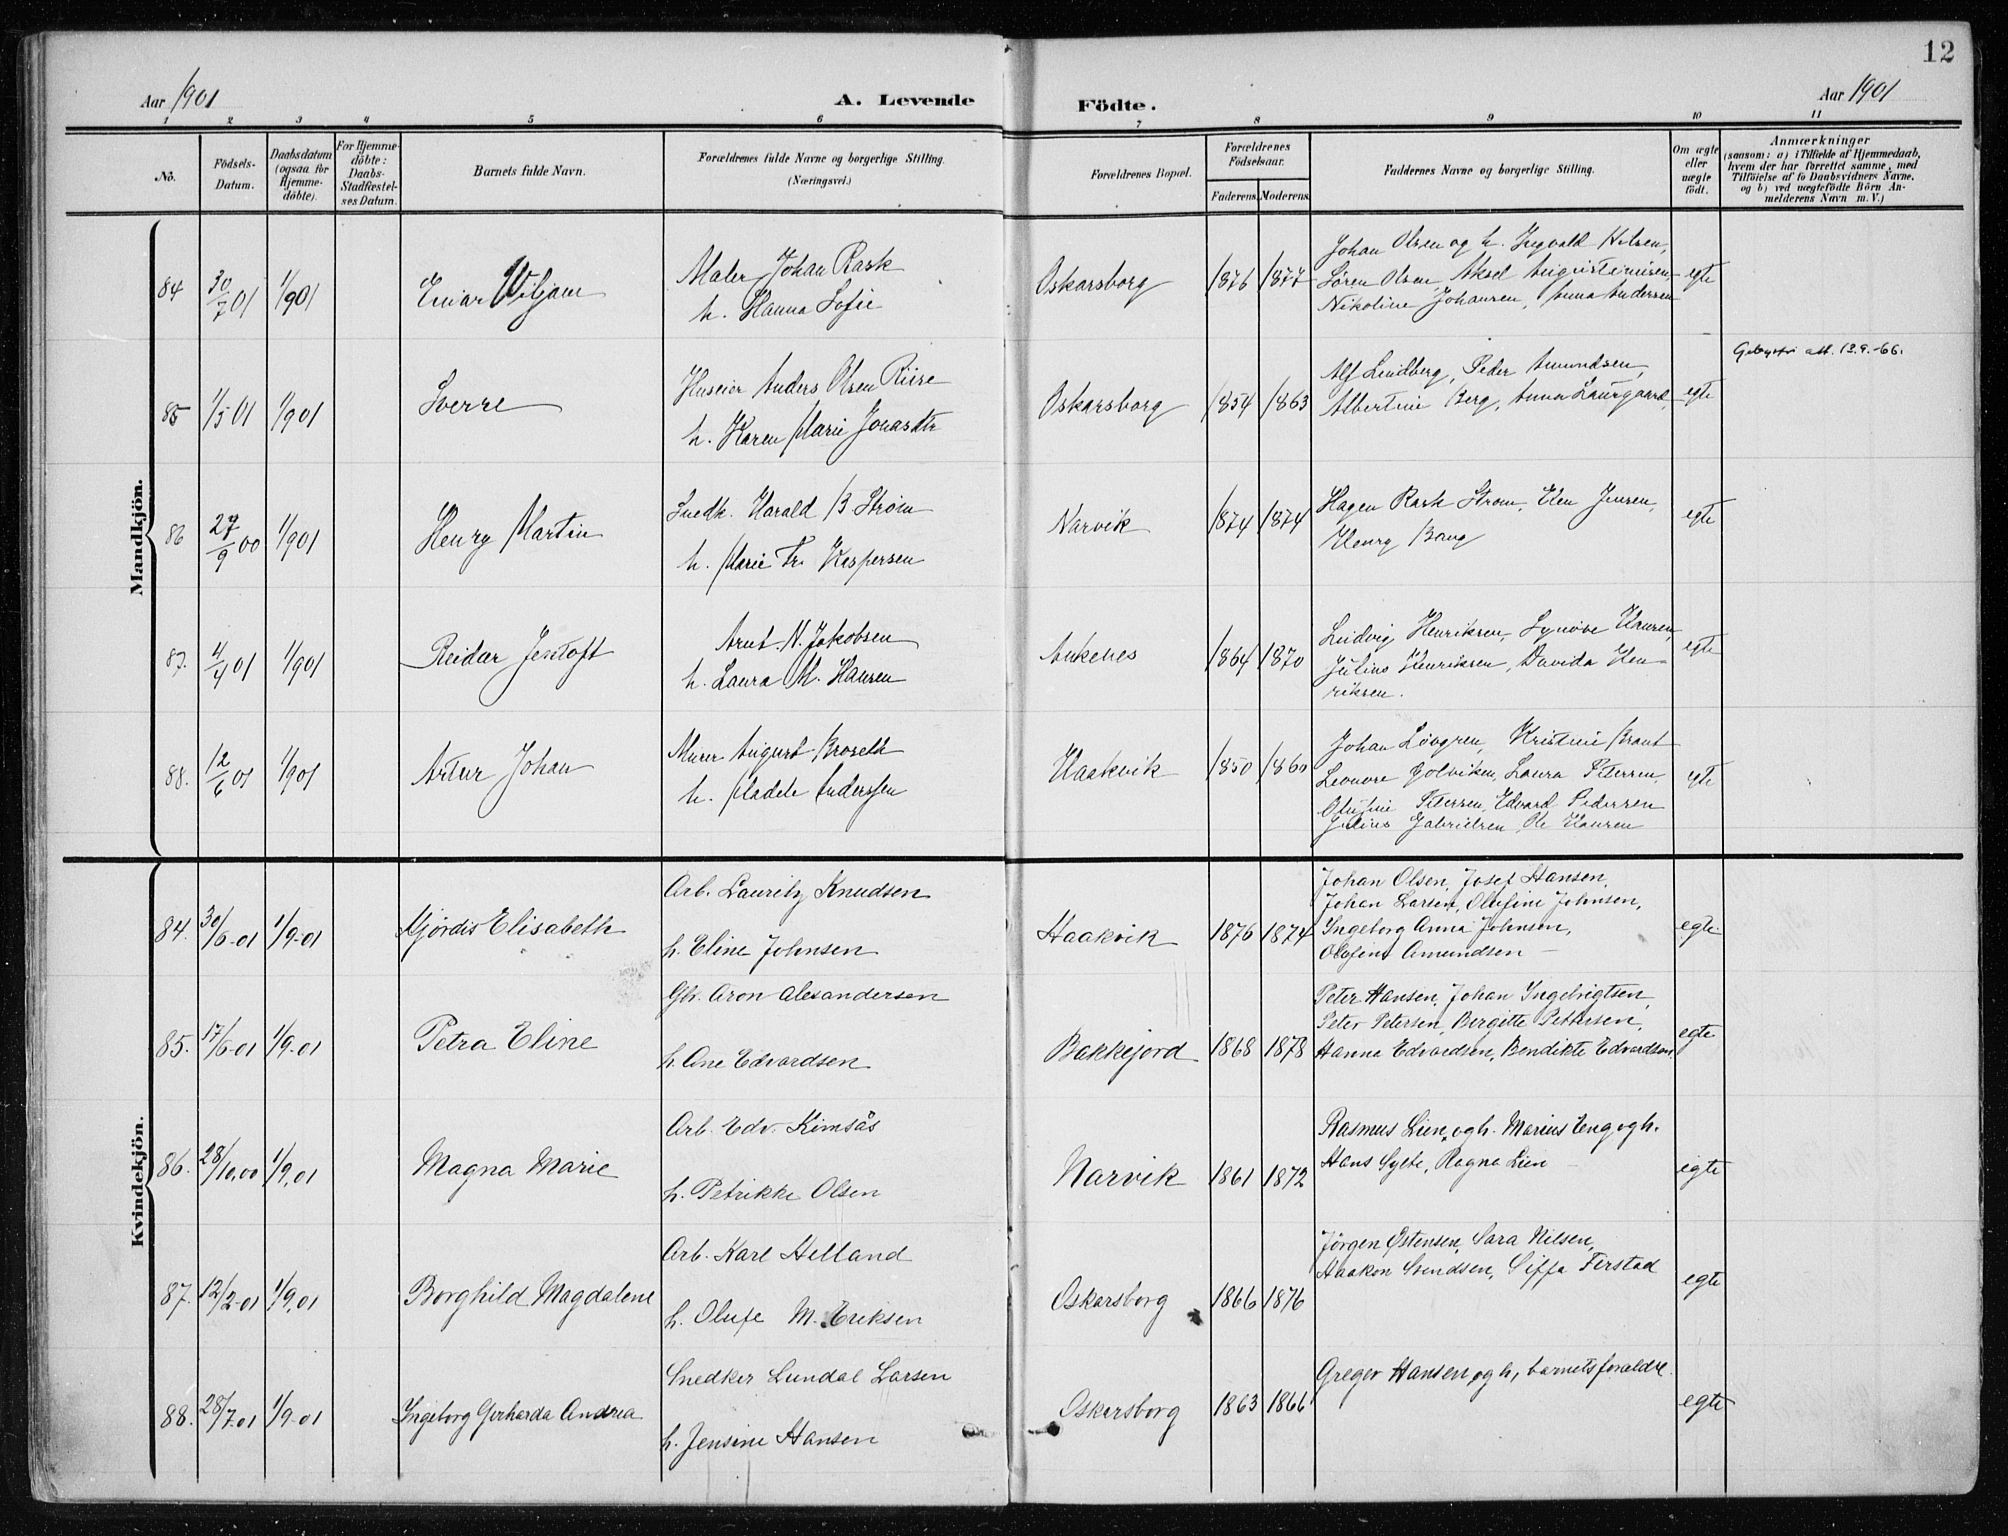 12
Aar 1901
A. Levende
Födte.
Aar 1901
1 2 3 4 5 6 7 8 9 10 11
No.
Födsels-
Datum.
Daabsdatum
(ogsaa for
Hjemme-
döbte).
For Hjemme-
döbte:
Daabs-
Stadfæstel-
ses Datum.
Barnets fulde Navn.
Forældrenes fulde Navne og borgerlige Stilling.
(Næringsvei.)
Forældrenes Bopæl.
Forældrenes
Födselsaar.
Faderens. Moderens.
Faddernes Navne og borgerlige Stilling.
Om ægte
eller
uægte
födt.
Anmærkninger
(saasom: a) i Tilfælde af Hjemmedaab,
hvem der har forrettet samme, med
Tilföielse af to Daabsvidners Navne,
og b) ved uægtefödte Börn An-
melderens Navn m. V.)
Mandkjön.
84 30/7 01 1/9 01 Einar Viljam
Maler Johan Rask
h. Hanna Sofie
Oskarsborg 1876 1877
Johan Olsen og h. Ingvald Nilsen,
Søren Olsen, Aksel Augustinusen,
Nikoline Johansen, Anna Andersen
egte
85 1/5 01 1/9 01 Sverre
Huseier Anders Olsen Riise
h. Karen Marie Jonasdtr
Oskarsborg 1854 1863
Alf Lindberg, Peder Amundsen,
Albertine Berg, Anna Laurgaard,
egte
att. 12.9.-66.
86 27/9 00 1/9 01 Henry Martin
Snedk. Harald B Strøm
h. Marie Fr. Kaspersen
Narvik 1874 1874
Hagen Rask Strøm, Elen Jensen,
Henry Bang
egte
87. 4/4 01 1/9 01 Reidar Jentoft
Arnt N. Jakobsen
h. Laura M. Hansen
Ankenes 1864 1870
Ludvig Henriksen, Synøve Hansen,
Julius Henriksen, Davida Hen-
riksen.
egte
88. 12/6 01 1/9 01 Artur Johan
Murer August Broseth
h. Madele Anderssen
Haakvik 1850 1860
Johan Lövgren, Kristine Brant
Leonore Golviken, Laura Petersen,
Olufine Petersen, Edvard Pedersen
Julius Gabrielsen, Ole Hansen
egte
Kvindekjön.
84. 30/6-01 1/9-01 Hjördis Elisabeth
Arb. Lauritz Knudsen
h. Eline Johnsen
Haakvik 1876 1874
Johan Olsen, Josef Hansen,
Johan Larsen, Olufine Johnsen,
Ingeborg Anna Johnsen,
Olufine Amundsen
egte.
85. 17/6-01 1/9-01 Petra Eline
Gbr. Aron Alexandersen
h. Ane Edvardsen
Bakkejord 1868 1878
Peter Hansen, Johan Ingebrigtsen,
Peter Petersen, Bergitte Pettersen,
Hanna Edvardsen, Bendikte Edvardsen.
egte
86. 28/10.00 1/9.01 Magna Marie
Arb. Edv. Kimsås
h. Petrikke Olsen
Narvik 1861 1872
Rasmus Lien, og h. Marius Eng og h.
Hans Sylte, Ragna Lien
egte
87. 12/2-01 1/9.01 Borghild Magdalene
Arb. Karl Helland
h. Olufe M. Eriksen
Oskarsborg 1866 1876
Jörgen Östensen, Sara Nilsen,
Haakon Svendsen, Siffa Ferstad
egte
88. 28/7.01 1/9-01 Ingeborg Gerharda Andrea
Snedker Lundal Larsen
h. Jensine Hansen
Oskarsborg 1863 1866
Greger Hansen og h, barnets forældre.
egte